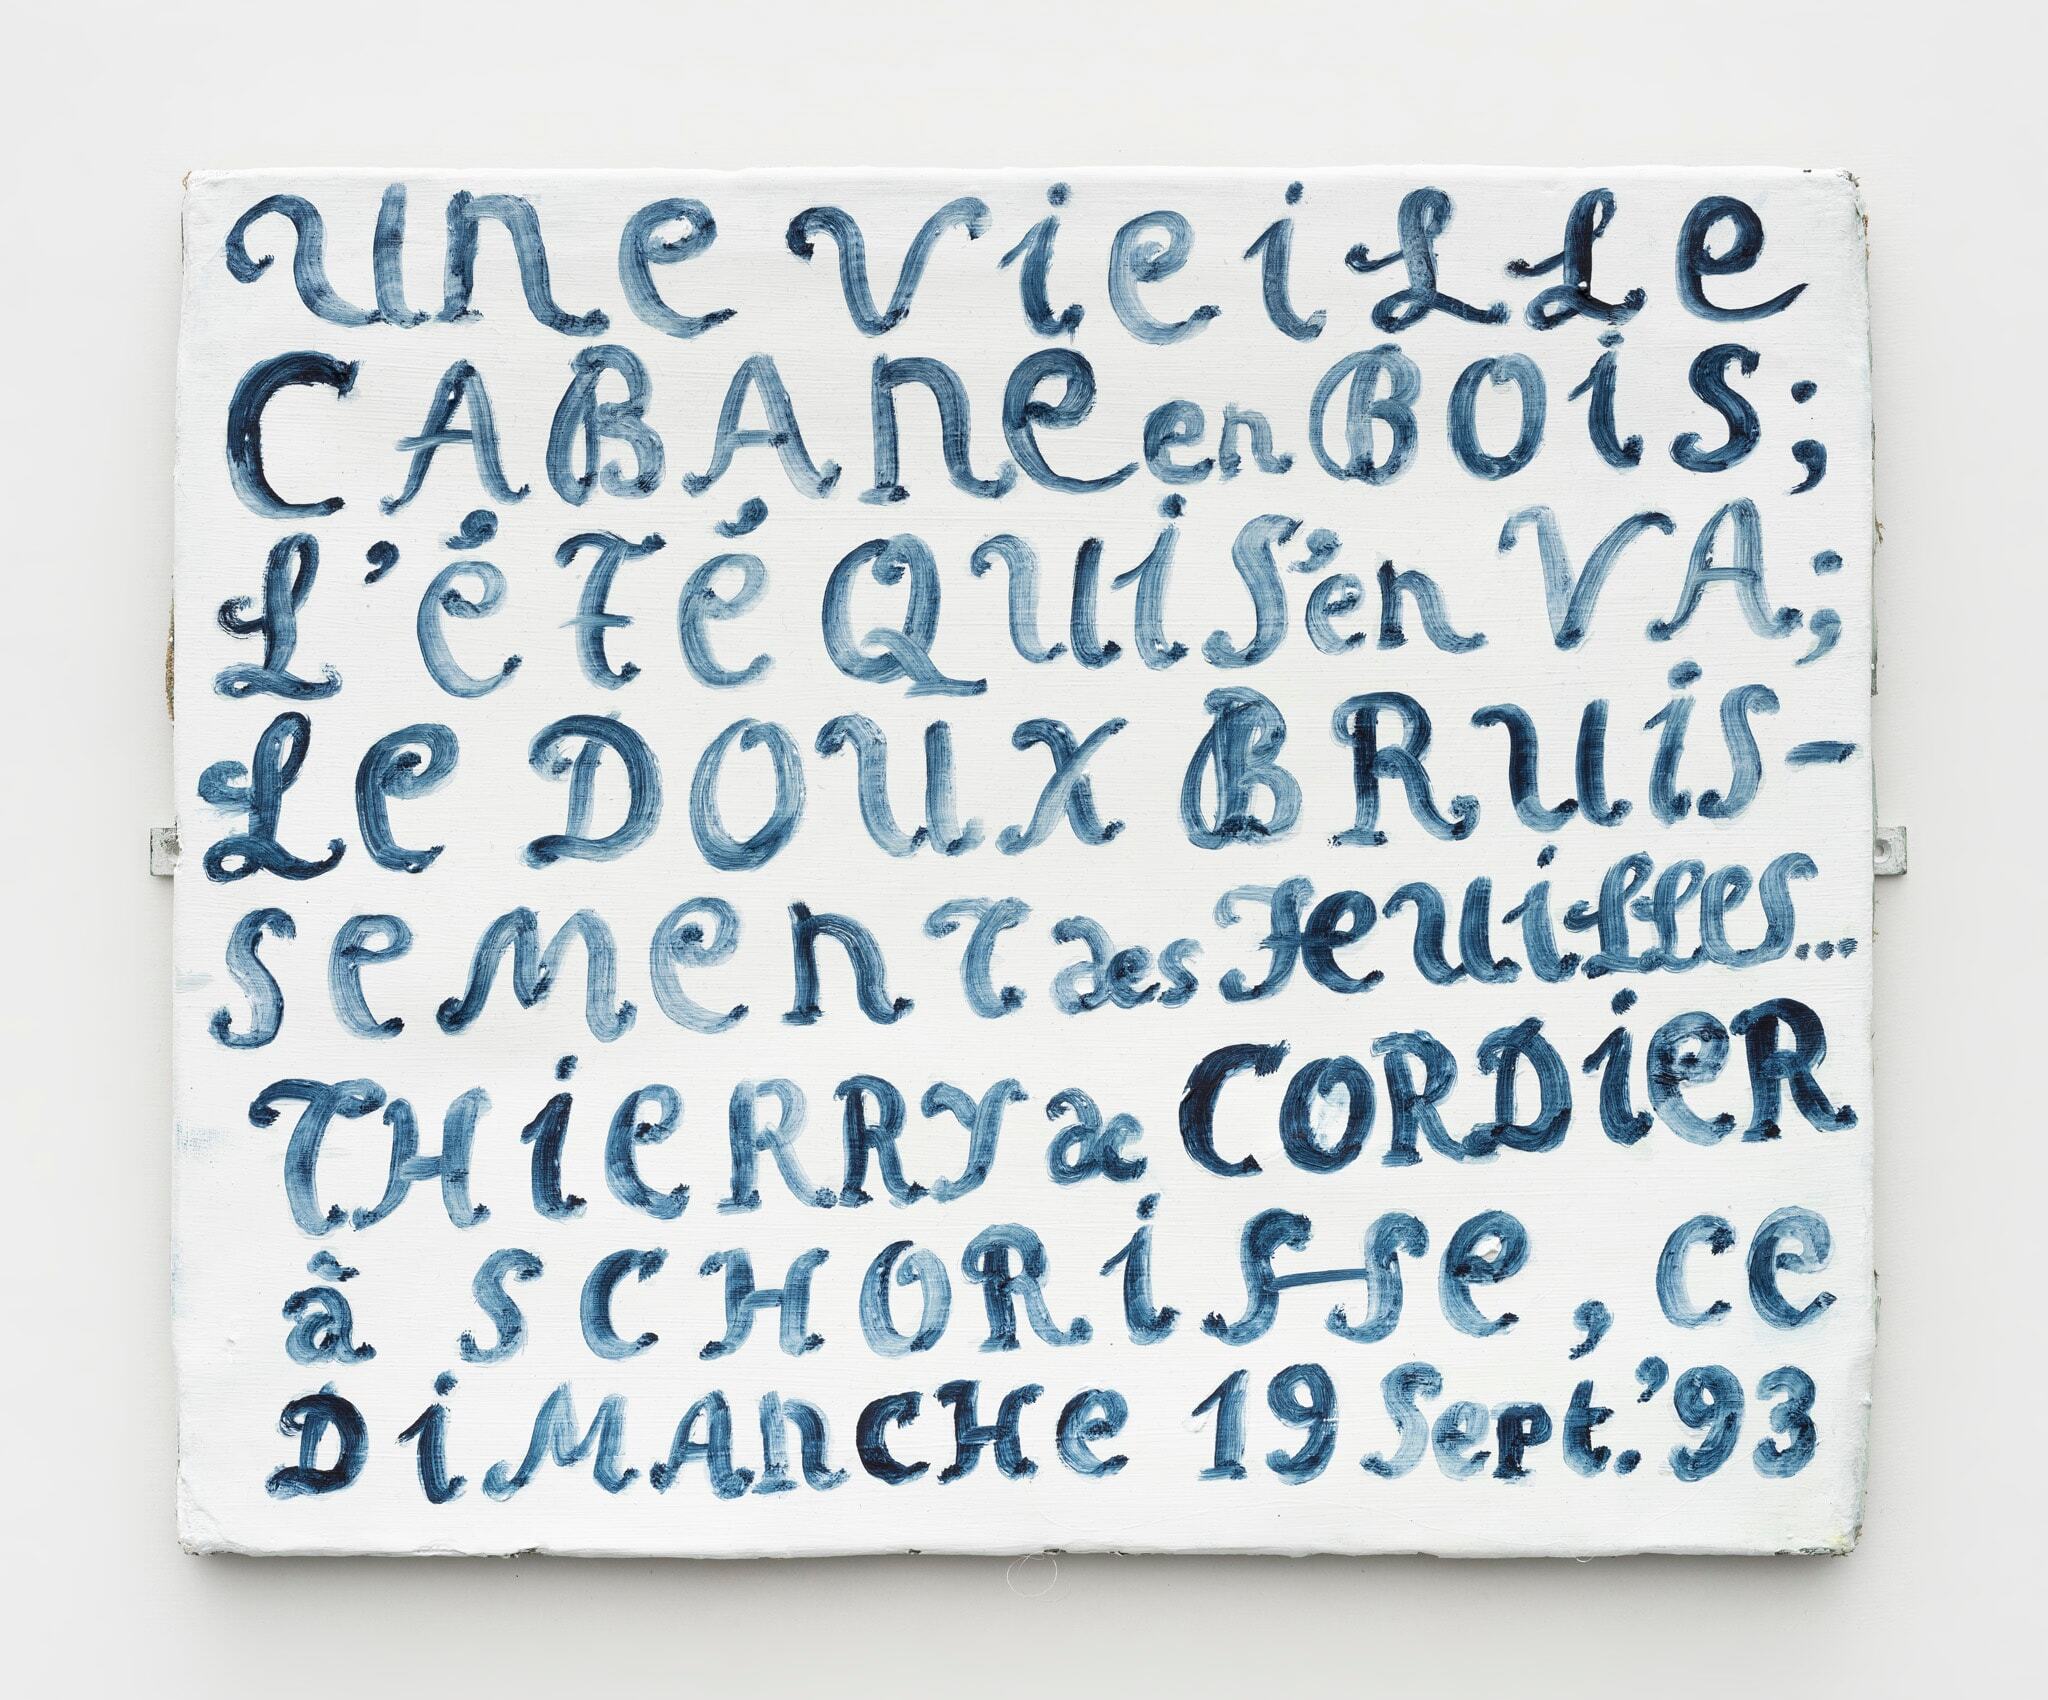 Une VieiLLe
CABAne en BOiS;
L'éTé QUi S'en VA;
Le DOUX BRUiS-
SemenT des FeUiLLeS...
THieRRY de CORDieR
à SCHORiSSe, Ce
DiMAnCHe 19 Sept.'93